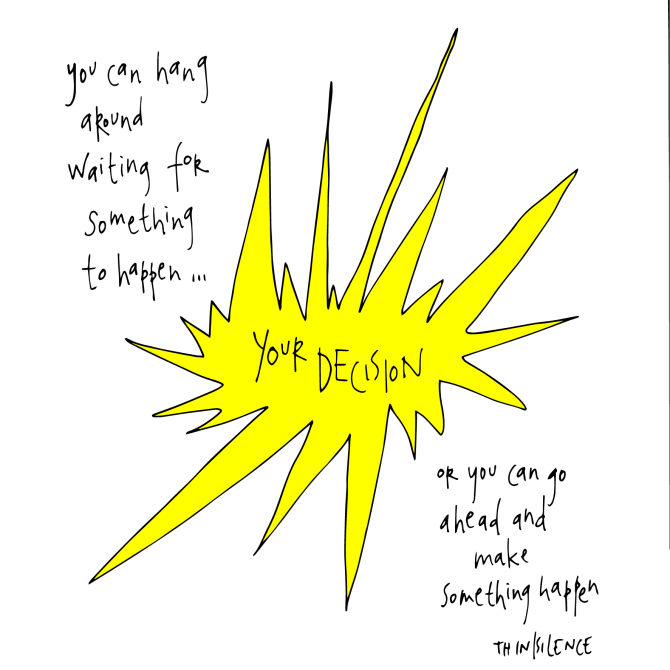 you can hang
around
waiting for
something
to happen ...
YOUR DECISION
or you can go
ahead and
make
something happen
THIN|SILENCE